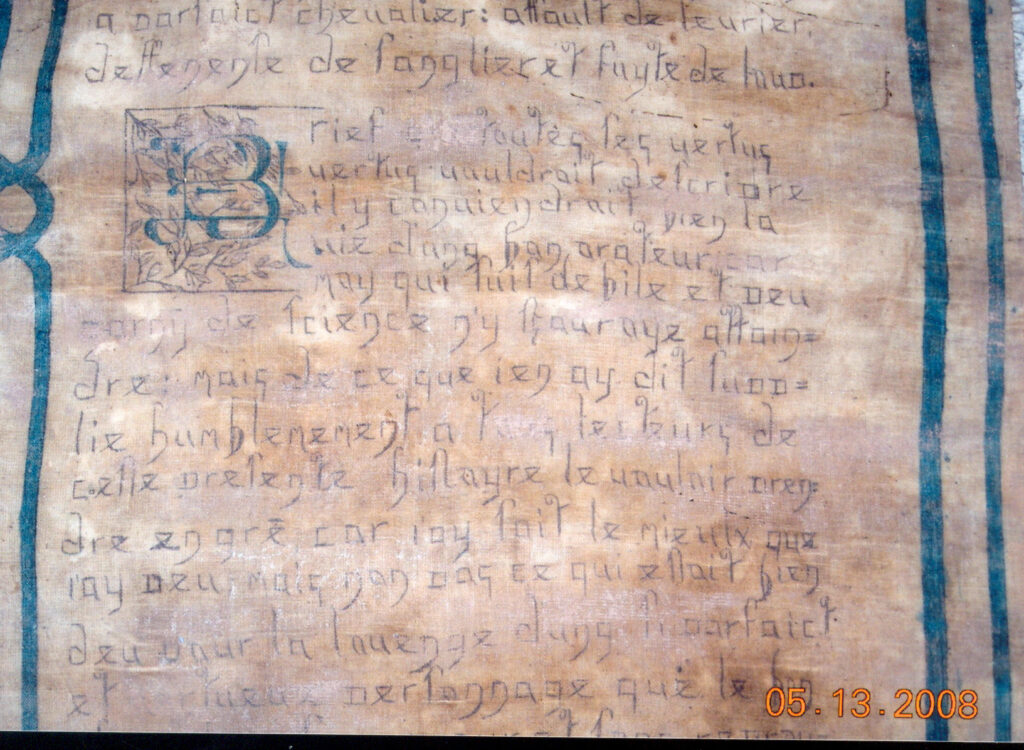 a parfaict cheualier: assault de leurier,
deffenense de sanglier et fuyte de loup.
Brief toutes ses vertus
vertus vouldroit descripre
il y conuiendroit bien la
vie dung bon orateur car
moy qui suit debile et peu
de science n'y scauroye attain=
dre: mais de ce que ien ay dit supp=
lie humblemement a tous lecteurs de
ceste presente histoyre le vouloir pren=
dre en gré car iay fait le mieulx que
iay peu mais non pas ce qui estoit bien
deu pour la louenge dung si parfaict
et tueux personnaige que le bon
05.13.2008